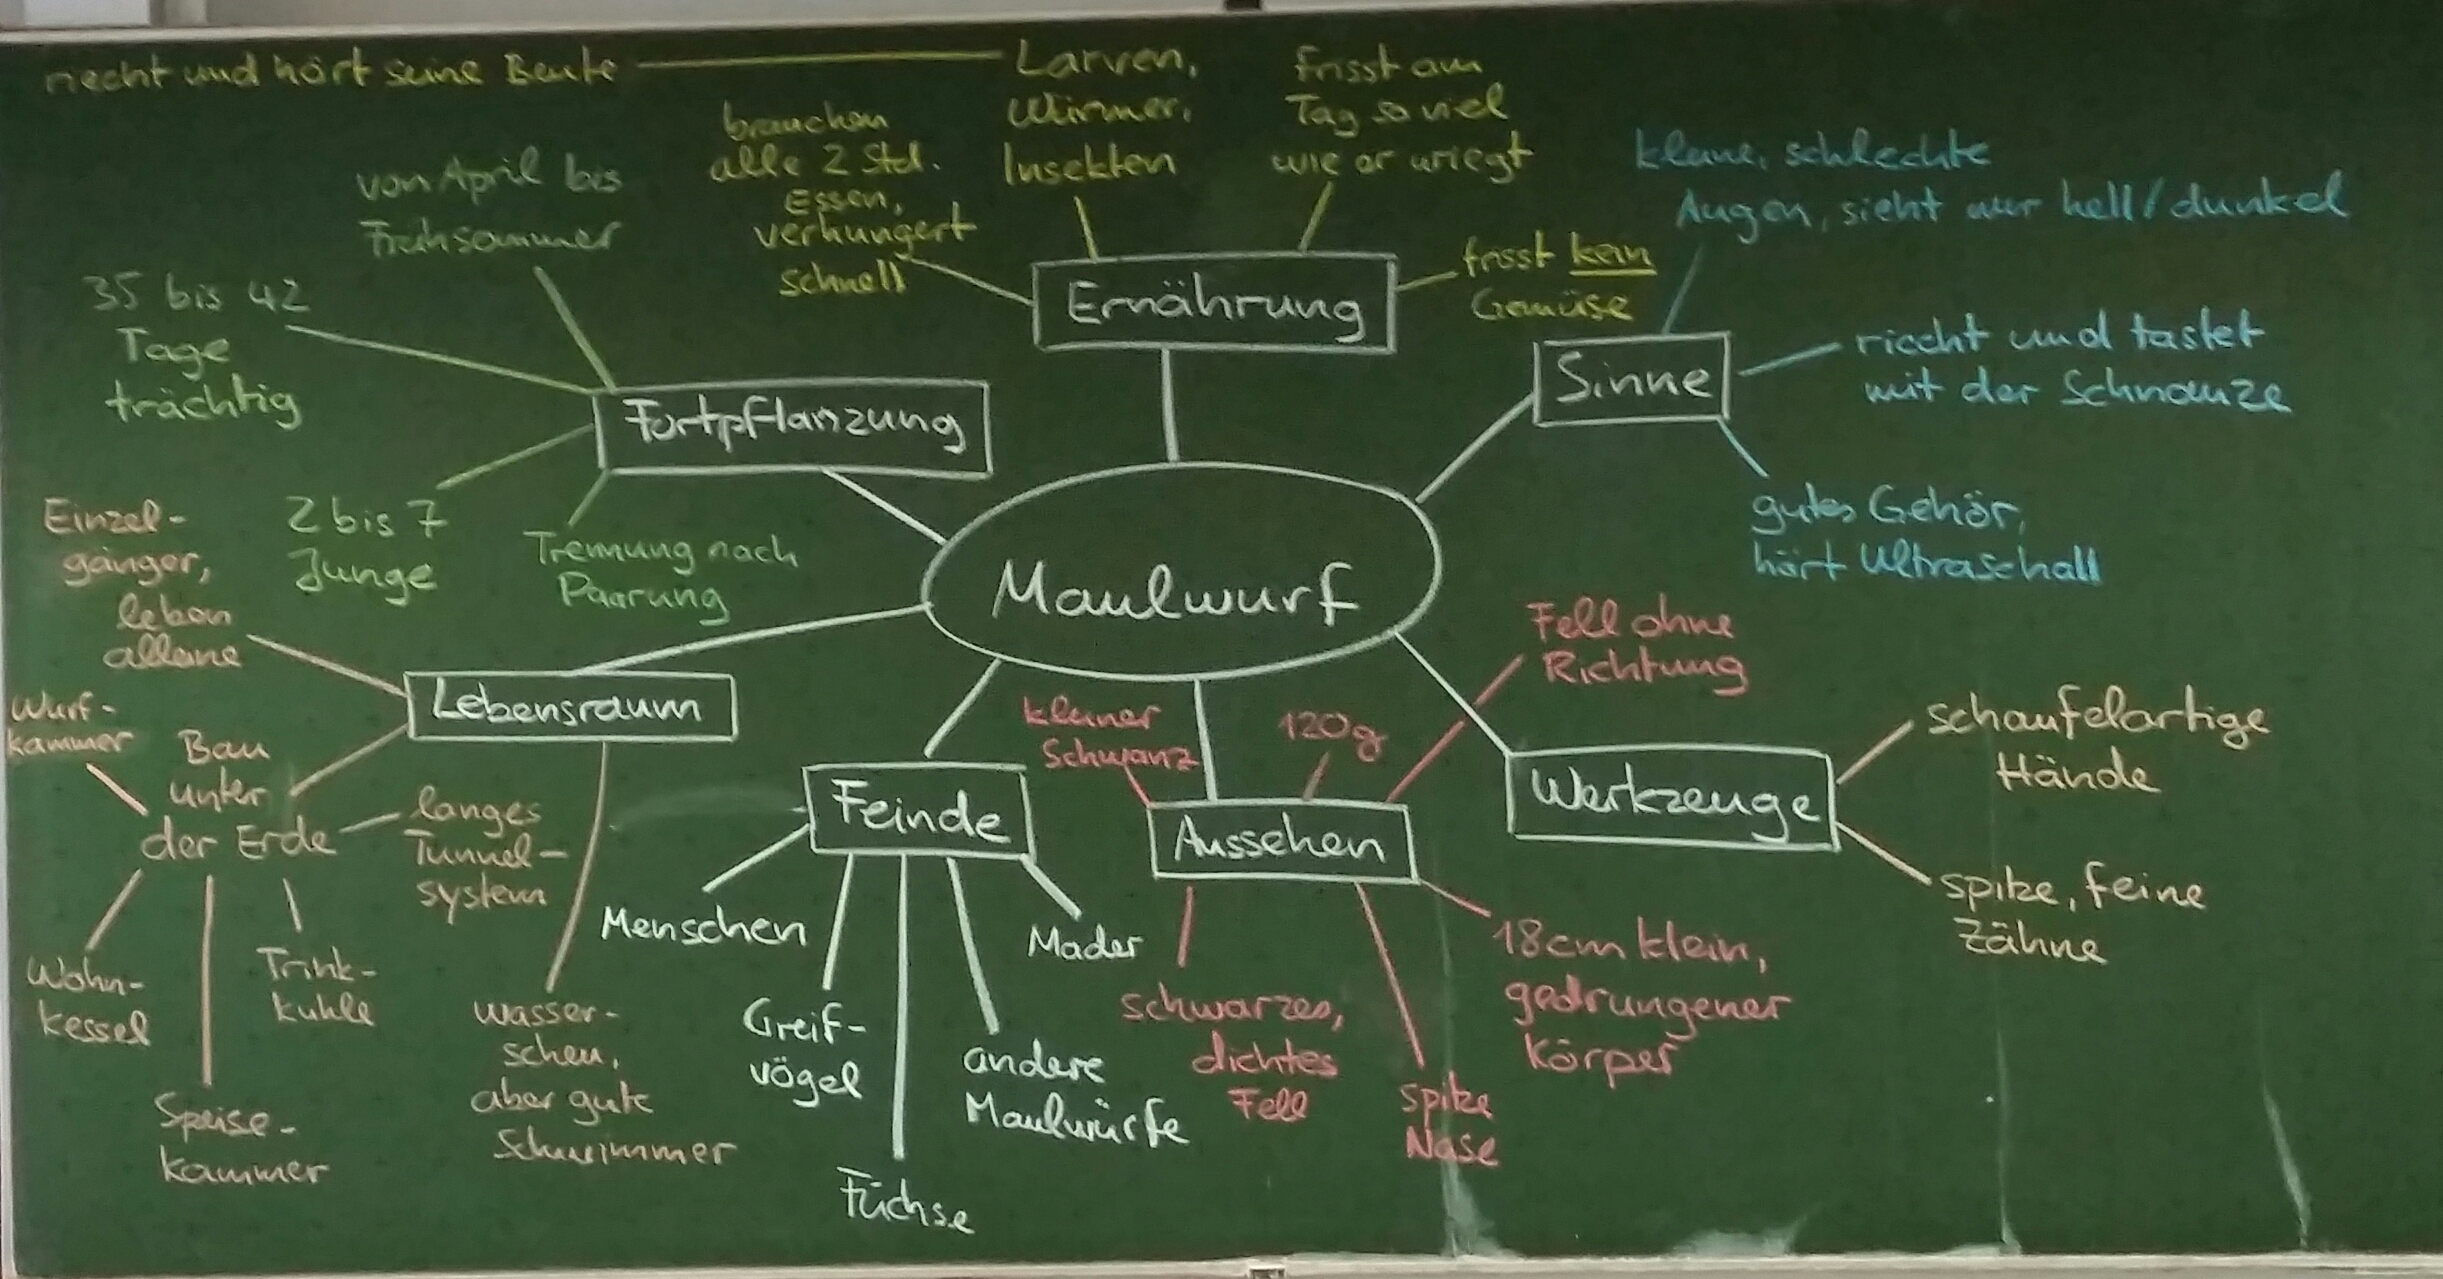 riecht und hört seine Beute
Larven,
Würmer,
Insekten
frisst am
Tag so viel
wie er wiegt
brauchen
alle 2 Std.
Essen,
verhungert
schnell
frisst kein
Gemüse
Ernährung
kleine, schlechte
Augen, sieht nur hell/dunkel
riecht und tastet
mit der Schnauze
gutes Gehör,
hört Ultraschall
Sinne
von April bis
Frühsommer
35 bis 42
Tage
trächtig
2 bis 7
Junge
Trennung nach
Paarung
Fortpflanzung
Maulwurf
Einzel-
gänger,
leben
alleine
Lebensraum
Wurf-
kammer
Bau
unter
der Erde
langes
Tunnel-
system
Wohn-
kessel
Speise-
kammer
Trink-
kuhle
wasser-
scheu,
aber gute
Schwimmer
Feinde
Menschen
Greif-
vögel
Füchse
andere
Maulwürfe
Mader
kleiner
Schwanz
120g
Fell ohne
Richtung
Aussehen
schwarzes,
dichtes
Fell
spitze
Nase
18cm klein,
gedrungener
Körper
Werkzeuge
schaufelartige
Hände
spitze, feine
Zähne